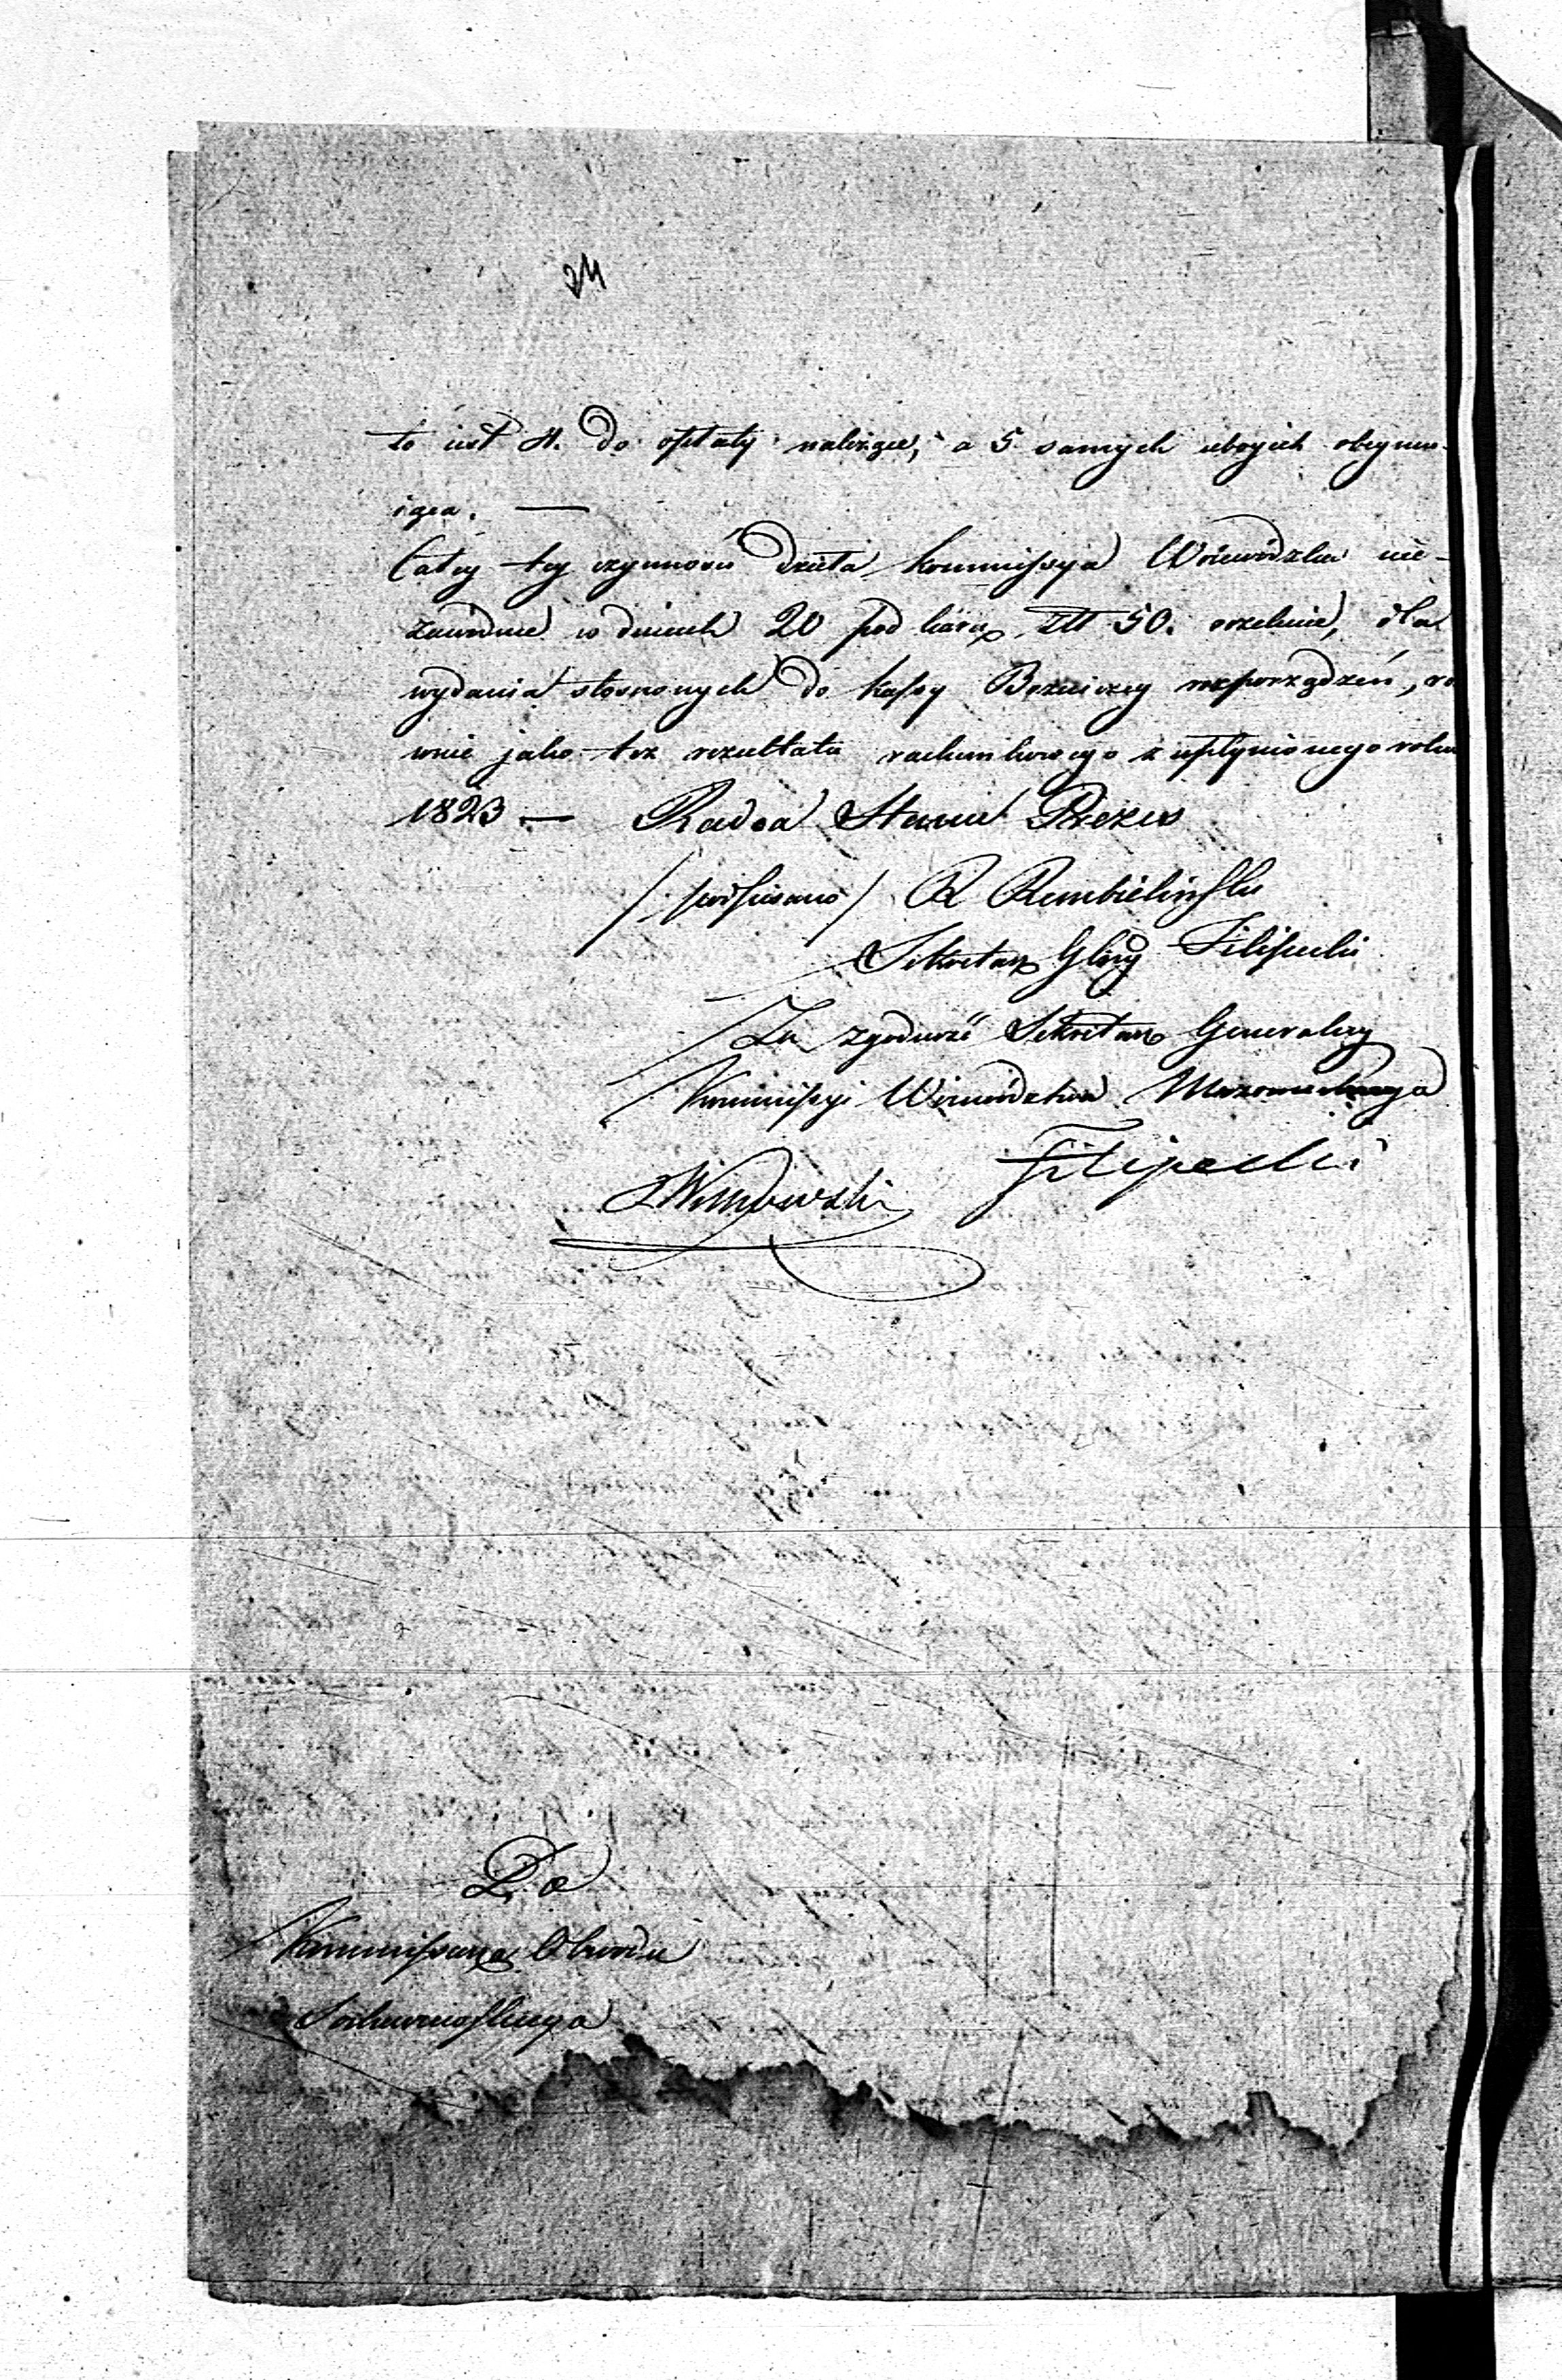 24
to iest 4. do opłaty należące, a 5 samych ubogich obeymu-
iąca. —
Całey tey czynności dzieła Kommissya Woiewódzka nie-
zawodnie w dniach 20 pod karą Złł 50. oczekuie, dla
wydania stosownych do kassy Bożniczey rozporządzeń, ró
wnie jako też rezultatu rachunkowego z upłynionego roku
1823 — Radca Stanu Prezes
/: podpisano / R Rembieliński
Sekretarz Glny Filipecki
Za zgodność Sekretarz Generalny
Kommissyi Woiewództwa Mazowieckiego
Filipecki
Do
Kommissarza Obwodu
Sochaczewskiego